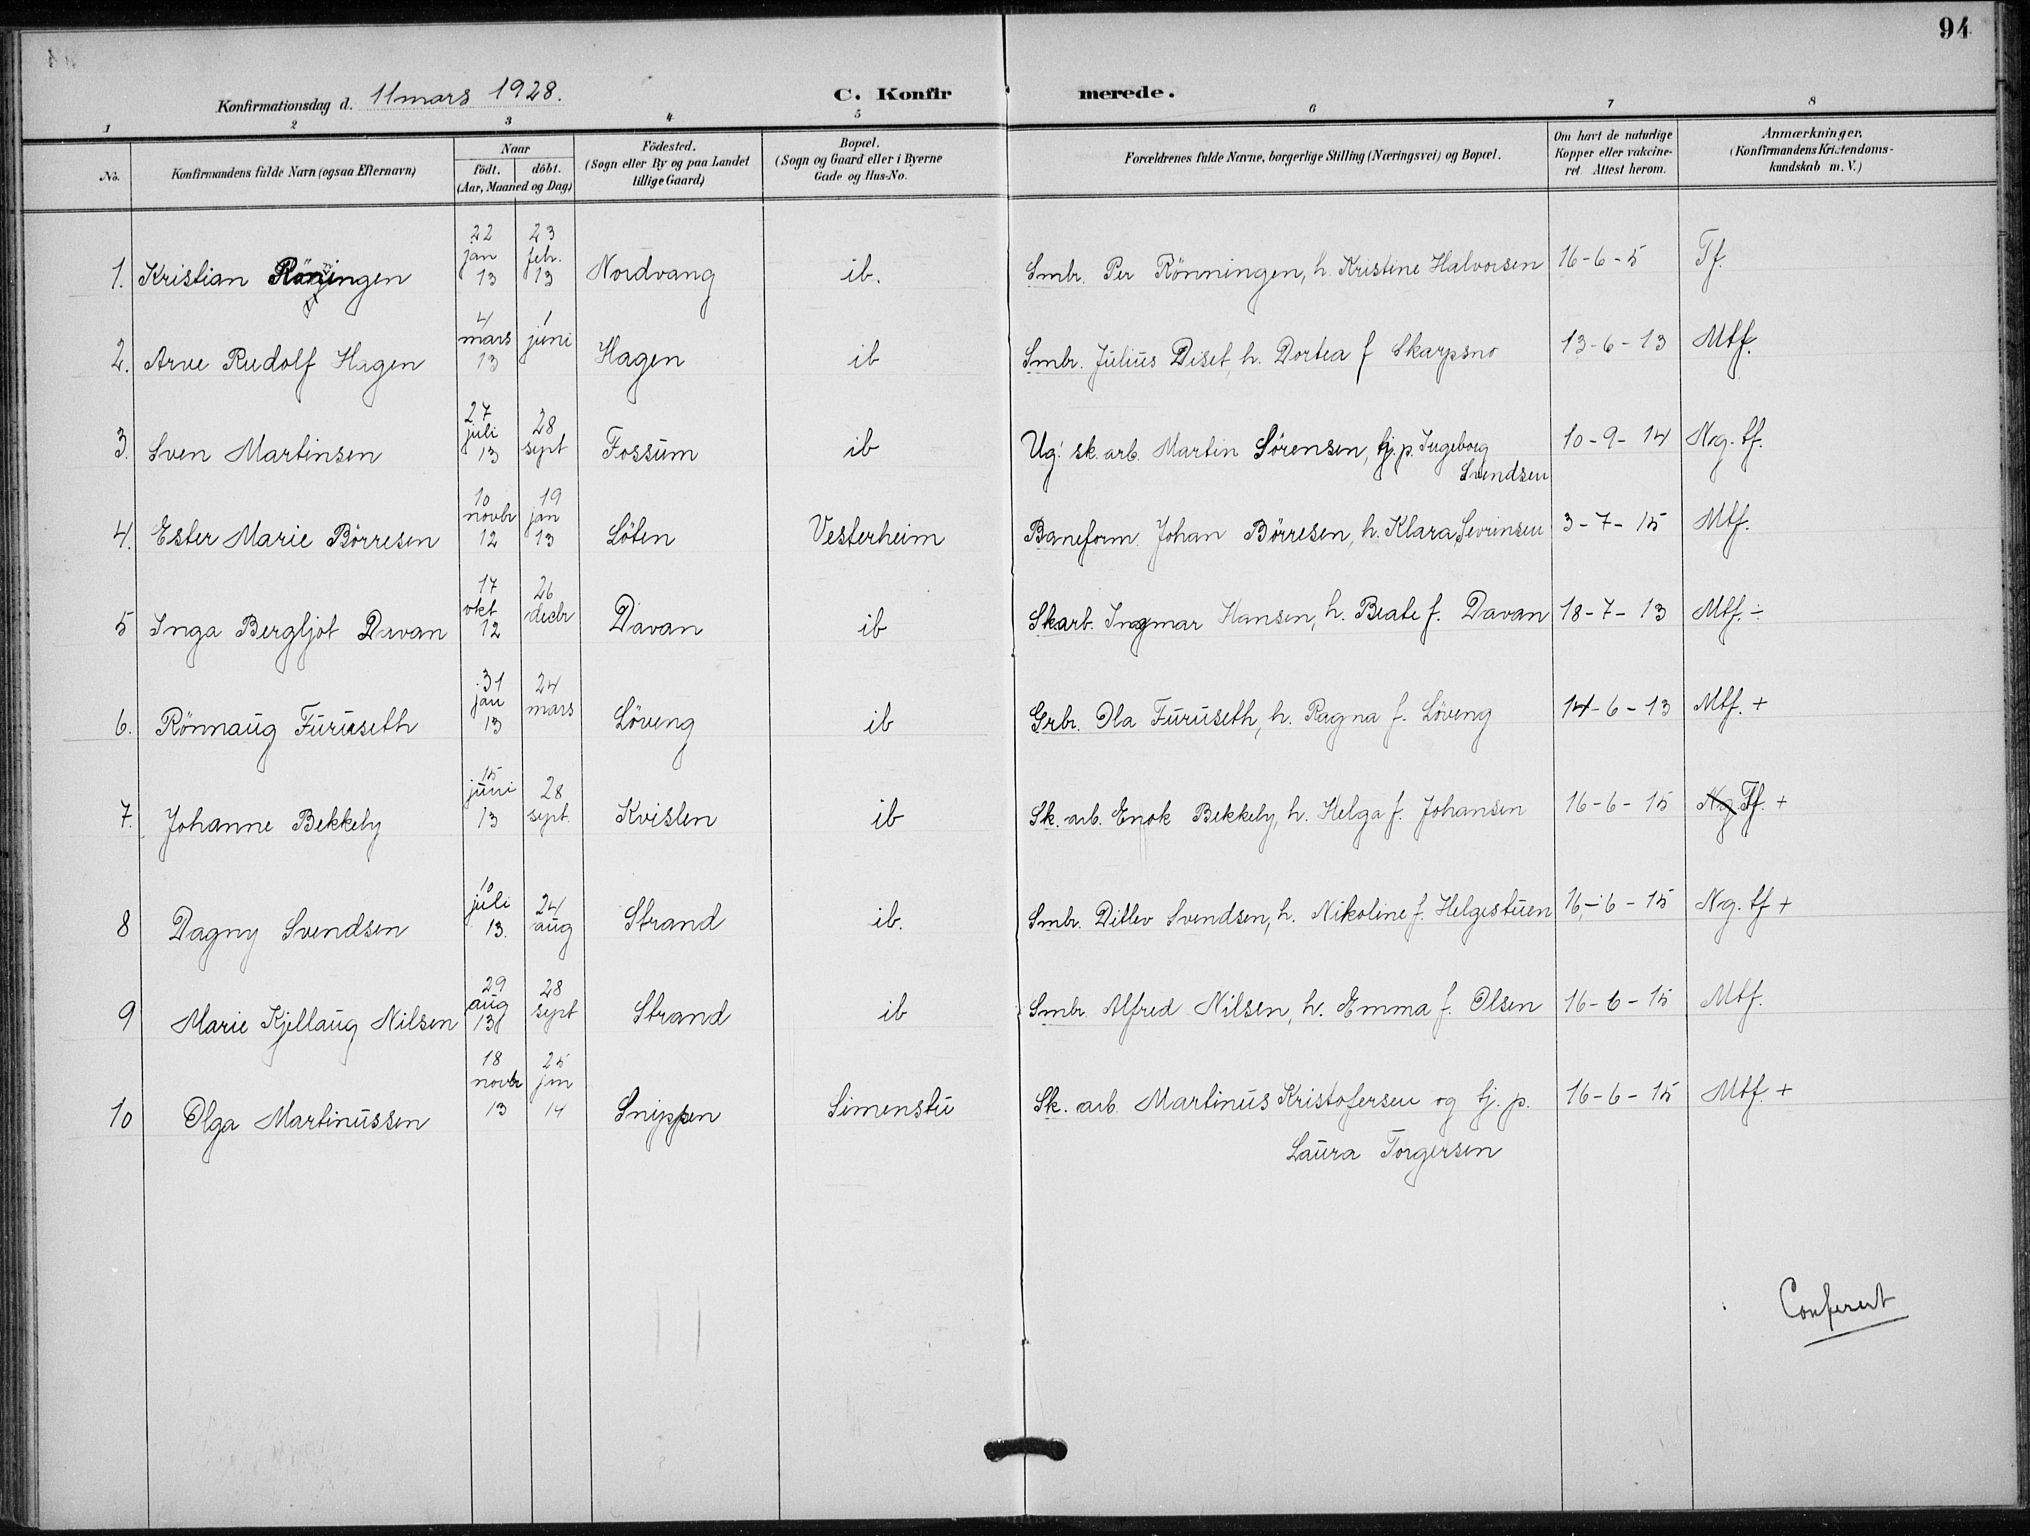 94
Konfirmationsdag d. 11 mars 1928. C. Konfirmerede.
1 2 3 4 5 6 7 8
No. Konfirmandens fulde Navn (ogsaa Efternavn) Naar födt. döbt. (Aar, Maaned og Dag) Födested. (Sogn eller By og paa Landet tillige Gaard) Bopæl. (Sogn og Gaard eller i Byerne Gade og Hus-No. Forældrenes fulde Navne, borgerlige Stilling (Næringsvei) og Bopæl. Om havt de naturlige Kopper eller vakcineret. Attest herom. Anmærkninger. (Konfirmandens Kristendomskundskab m. V.)
1. Kristian Rönningen 22 jan 13 23 febr. 13 Nordvang ib. Smbr. Per Rönningen, h. Kristine Halvorsen 16-6-5 Tf.
2. Arve Rudolf Hagen 4 mars 13 1 juni Hagen ib Smbr. Julius Diset, h. Dortea f Skarpsno 13-6-13 Mtf.
3. Sven Martinsen 27 juli 13 28 sept Fossum ib Ug: sk. arb. Martin Sörensen, tj. p. Ingeborg
Svendsen 10-9-14 Ng. tf.
4. Ester Marie Börresen 10 novbr 12 19 jan 13 Löten Vesterheim Baneform. Johan Börresen, h. Klara Sevrinsen 3-7-15 Mtf.
5 Inga Bergljot Davan 17 okt 12 26 decbr Davan ib Skarb. Ingmar Hansen, h. Beate f. Davan 18-7-13 Mtf. ÷
6. Rönnaug Furuseth 31 jan 13 24 mars Löveng ib Grbr. Ola Furuseth, h. Ragna f. Löveng 14-6-13 Mtf. +
7. Johanne Bekkeby 15 juni 13 28 sept. Kvislen ib Sk. arb. Enok Bekkeby, h. Helga f. Johansen 16-6-15 Ng. Tf. +
8 Dagny Svendsen 10 juli 13. 24 aug Strand ib. Smbr. Ditlev Svendsen, h. Nikoline f. Helgestuen 16-6-15 Ng. tf +
9 Marie Kjellaug Nilsen 29 aug 13 28 sept Strand ib Smbr Alfred Nilsen, h. Emma f. Olsen 16-6-15 Mtf.
10 Olga Martinussen 18 novbr 13 25 jan 14 Snippen Simenstu Sk. arb. Martinus Kristofersen og tj. p.
Laura Torgersen 16-6-15 Mtf +
Conferert